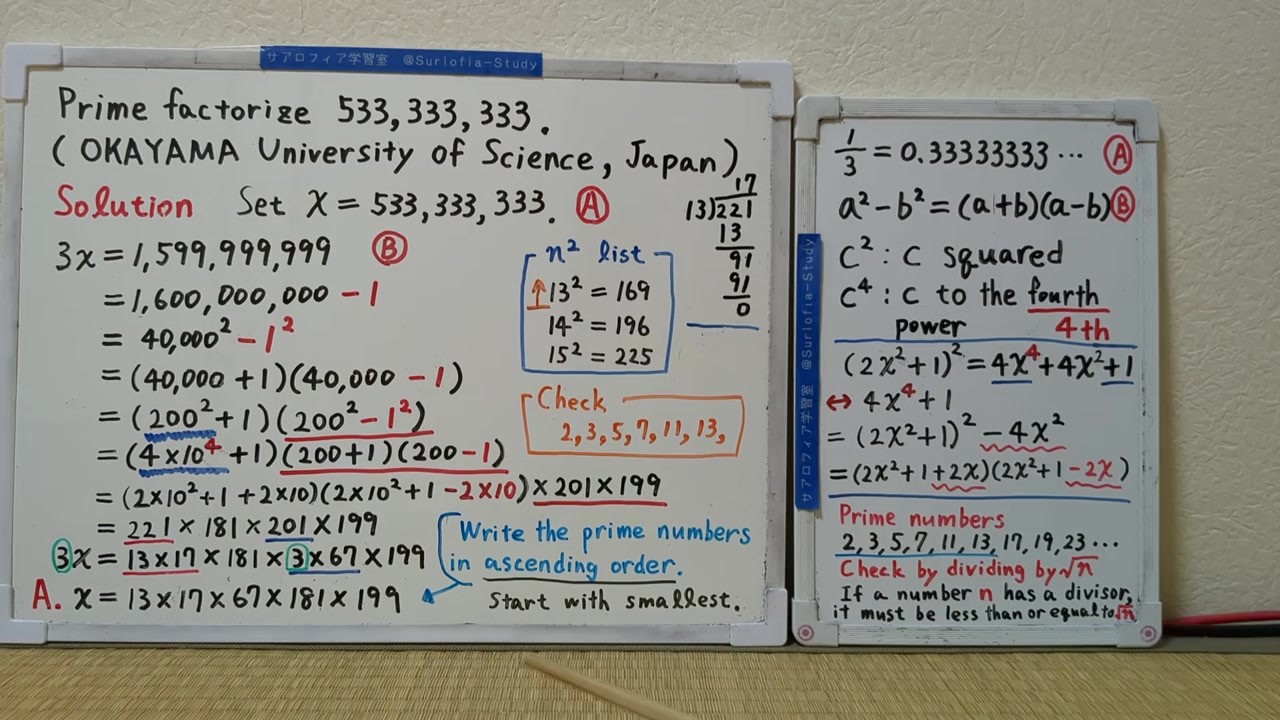 サアロフィア学習室 @Surlofia-Study
Prime factorize 533,333,333.
(OKAYAMA University of Science, Japan)
Solution Set x = 533,333,333. Ⓐ
3x = 1,599,999,999 Ⓑ
= 1,600,000,000 - 1
= 40,000² - 1²
= (40,000 + 1)(40,000 - 1)
= (200² + 1)(200² - 1²)
= (4×10⁴ + 1)(200+1)(200-1)
= (2×10²+1+2×10)(2×10²+1-2×10)×201×199
= 221×181×201×199
3x = 13×17×181×3×67×199
A. x = 13×17×67×181×199
n² list
↑13² = 169
14² = 196
15² = 225
Check
2,3,5,7,11,13,
Write the prime numbers
in ascending order.
Start with smallest.
17
13)221
13
91
91
0
サアロフィア学習室 @Surlofia-Study
1/3 = 0.33333333… Ⓐ
a²-b²=(a+b)(a-b)Ⓑ
C² : C squared
C⁴ : C to the fourth
power 4th
(2x²+1)²=4x⁴+4x²+1
↔ 4x⁴+1
= (2x²+1)²-4x²
=(2x²+1+2x)(2x²+1-2x)
Prime numbers
2,3,5,7,11,13,17,19,23…
Check by dividing by √n
If a number n has a divisor,
it must be less than or equal to √n